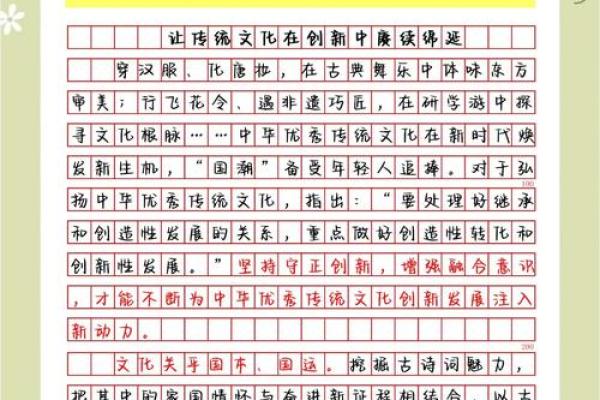 让传统文化在创新中赓续绵延
穿汉服、化唐妆，在古典舞乐中体味东方
审美；行飞花令、遇非遗巧匠，在研学游中探
寻文化根脉……中华优秀传统文化在新时代焕
发新生机，“国潮”备受年轻人追捧。对于弘
100
扬中华优秀传统文化，指出：“要处理好继承
和创造性发展的关系，重点做好创造性转化和
创新性发展。”坚持守正创新，增强融合意识
，才能不断为中华优秀传统文化创新发展注入
新动力。
200
文化关乎国本、国运。挖掘古诗词魅力，
把其中的家国情怀与奋进新征程相结合，以古